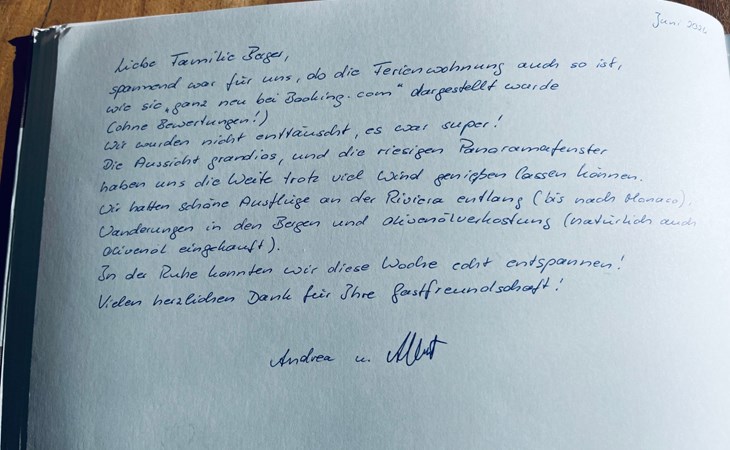 Juni 2024
Liebe Familie Berger,
spannend war für uns, ob die Ferienwohnung auch so ist,
wie sie „ganz neu bei Booking.com" dargestellt wurde
(ohne Bewertungen!)
Wir wurden nicht enttäuscht, es war super!
Die Aussicht grandios, und die riesigen Panoramafenster
haben uns die Weite trotz viel Wind genießen lassen können.
Wir hatten schöne Ausflüge an der Riviera entlang (bis nach Monaco),
Wanderungen in den Bergen und Olivenölverkostung (natürlich auch
Olivenöl eingekauft).
In der Ruhe konnten wir diese Woche echt entspannen!
Vielen herzlichen Dank für Ihre Gastfreundschaft!
Andrea u.